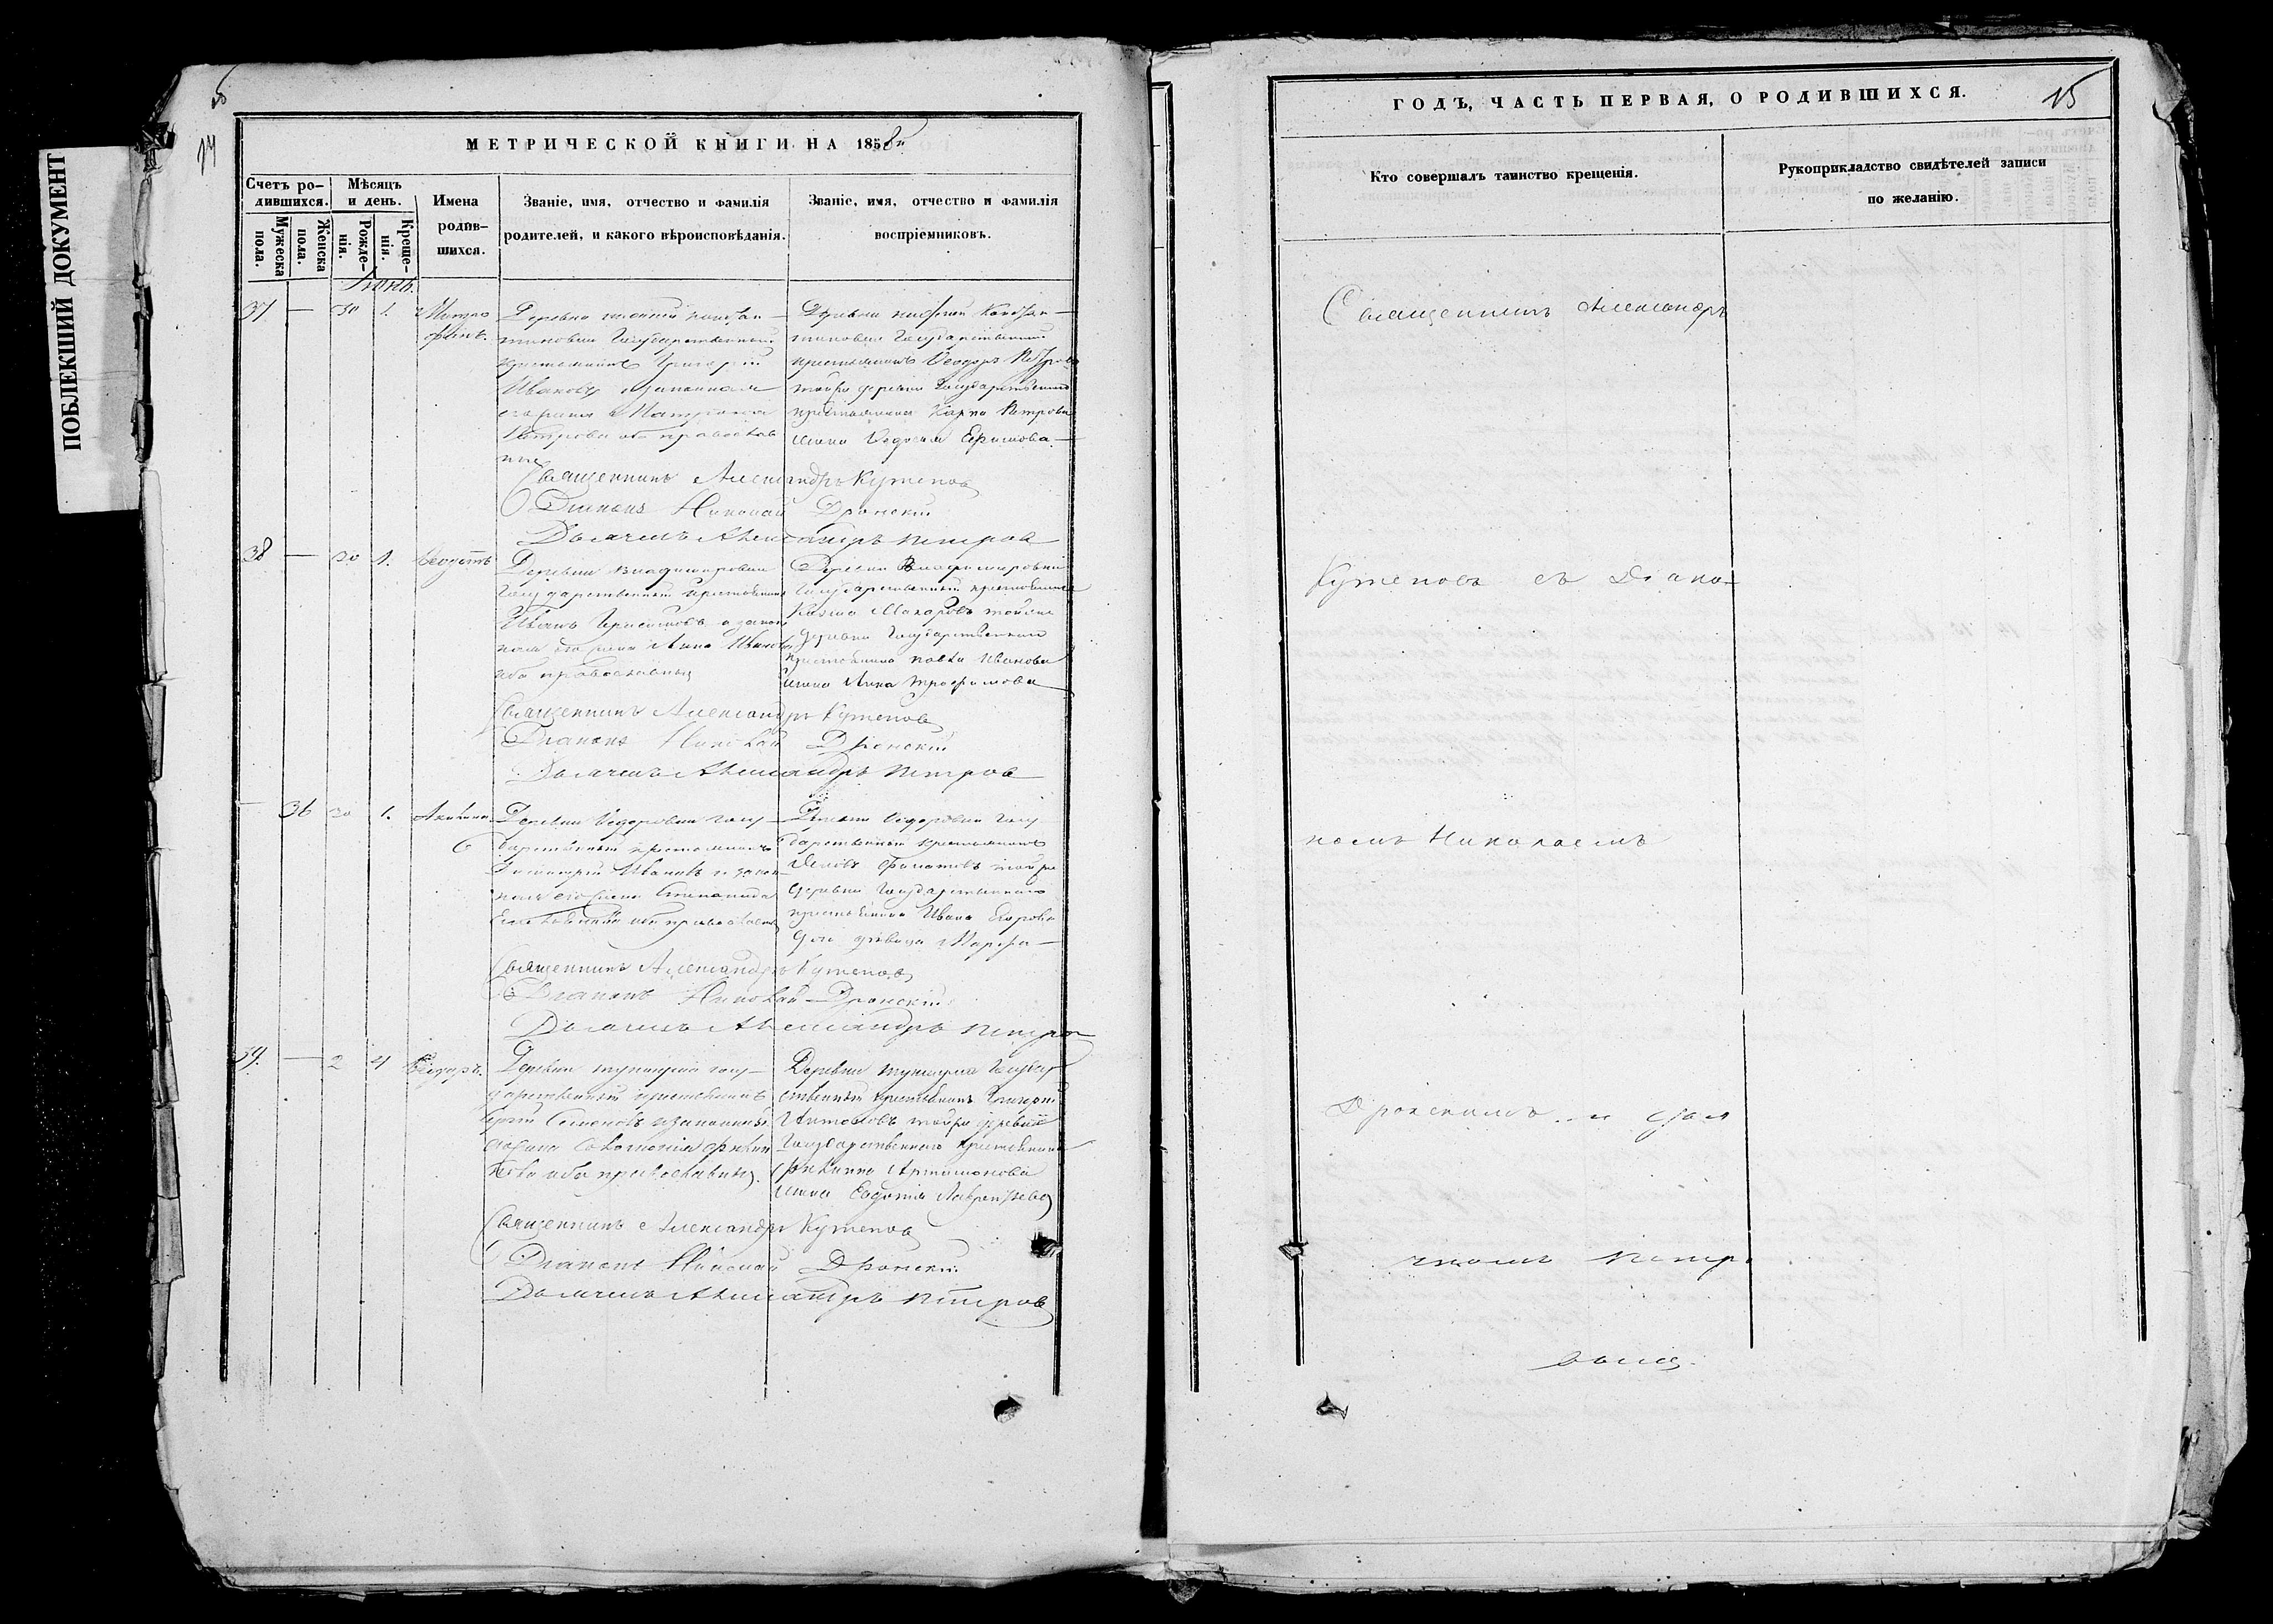 ПОБЛЕКШИЙ ДОКУМЕНТ
МЕТРИЧЕСКОЙ КНИГИ НА 1858й
Счетъ ро-
дившихся.
Мужеска
пола.
Женска
пола.
Мѣсяцъ
и день.
Рожде-
нія.
Креще-
нія.
Имена
родив-
шихся.
Званіе, имя, отчество и фамилія
родителей, и какого вѣроисповѣданія.
Званіе, имя, отчество и фамилія
воспріемниковъ.
Іюнь.
37 — 30 1. Митро
фанъ.
Деревни
Государственный
крестьянинъ Григорій
Ивановъ и законная
его жена Матрона
Петрова оба православ
ные
Деревни
Государственный
крестьянинъ Ѳеодоръ Петровъ
тойже деревни Государственнаго
крестьянина Карпа Петрова
жена Ѳедосья Ефимова.
Священникъ Александръ Кутеповъ
Діаконъ Николай Дронскій
Дьячекъ Александръ Петровъ
38 — 30 1. Ѳеодотъ
Деревни Владимировки
Государственный крестьянинъ
Иванъ Герасимовъ и закон
ная его жена Анна Иванова
оба православныя
Деревни Владимировки
Государственный крестьянинъ
Козма Макаровъ тойже
деревни Государственнаго
крестьянина Павла Иванова
жена Анна Трофимова
Священникъ Александръ Кутеповъ
Діаконъ Николай Дронскій
Дьячекъ Александръ Петровъ
— 36 30 1. Акилина
Деревни Ѳедоровки Госу-
дарственный крестьянинъ
Димитрій Ивановъ и закон-
ная его жена Степанида
оба православныя
Деревни Ѳедоровки Госу-
дарственный крестьянинъ
Филатовъ тойже
деревни Государственнаго
крестьянина Ивана Егорова
дочь дѣвица Марѳа
Священникъ Александръ Кутеповъ
Діаконъ Николай Дронскій
Дьячекъ Александръ Петровъ
39. — 2 4 Ѳедоръ.
Деревни Госу-
дарственный крестьянинъ
Семеновъ и законная
оба православныя.
Деревни Государ
ственный крестьянинъ Григорій
Антоновъ тойже деревни
Государственнаго крестьянина
Филиппа Артамонова
жена Евдокія Лаврентьева
Священникъ Александръ Кутеповъ
Діаконъ Николай Дронскій
Дьячекъ Александръ Петровъ
ГОДЪ, ЧАСТЬ ПЕРВАЯ, О РОДИВШИХСЯ.
15
Кто совершалъ таинство крещенія.
Рукоприкладство свидѣтелей записи
по желанію.
Священникъ Александръ
Кутеповъ съ Діако-
номъ Николаемъ
Дронскимъ и дья
чкомъ Петро
вымъ.